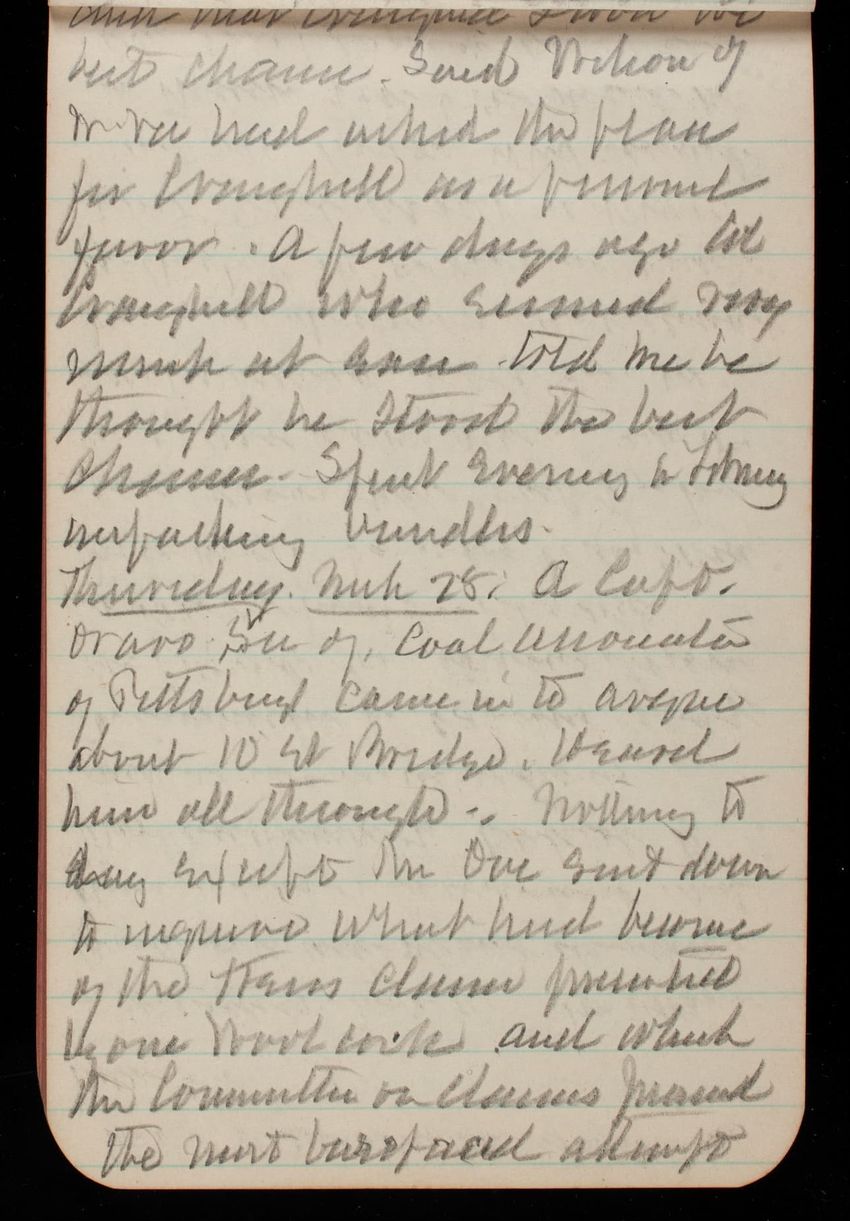 and that Craighill stood the
best chance. Said Wilson of
had asked the place
for Craighill as a personal
favor. A few days ago Col
Craighill who seemed very
much at ease told me he
thought he stood the best
chance. Spent Evening in Library
unpacking bundles.
Thursday. Mch 28. A Capt.
Dravo Sec of. Coal Association
of Pittsburg came in to argue
about 10 St Bridge. Heard
him all through. Nothing to
day Except the Dve sent down
to inquire what had become
of the Texas Claims presented
by one Woolcock and which
the Committee on Claims found
the most barefaced attempt